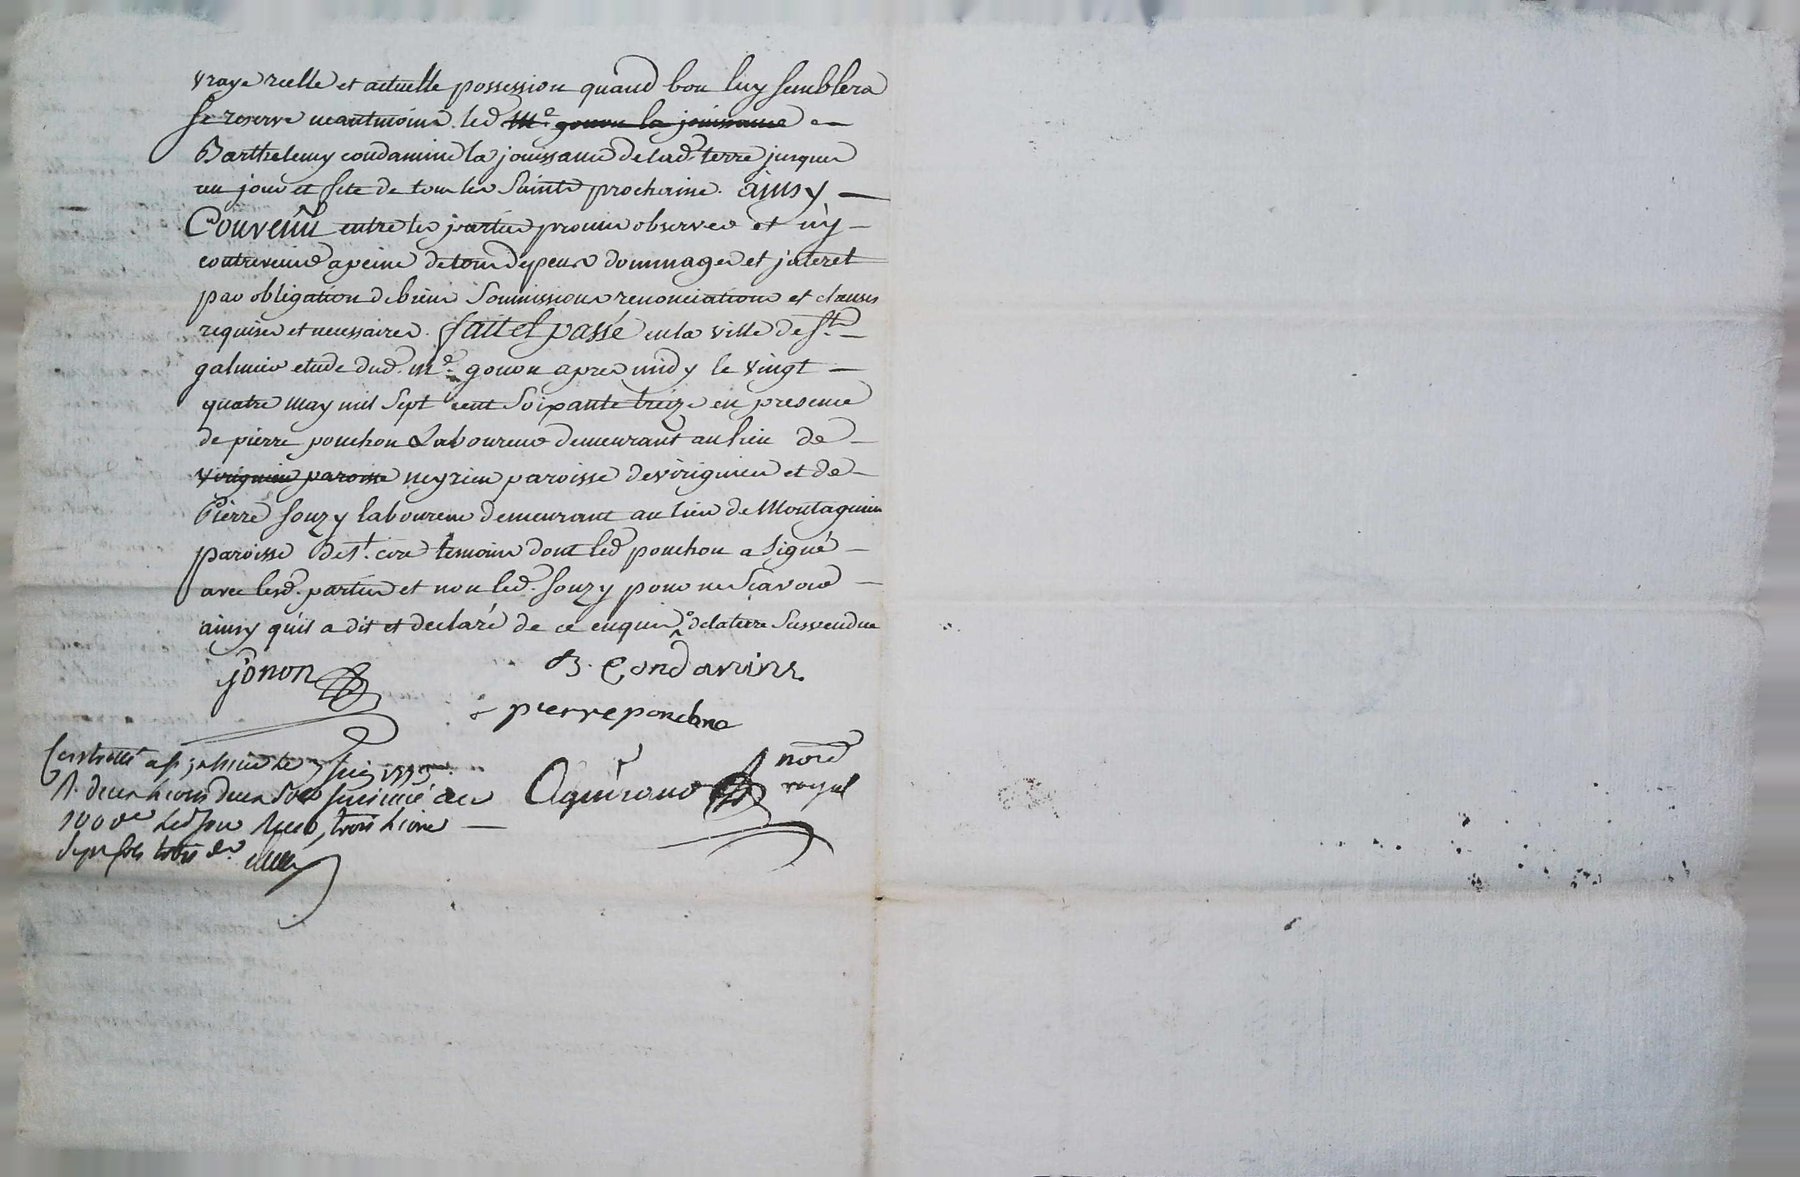 vraye reelle et actuelle possession quand bon luy semblera
se reserve neantmoins led. Me. gonon la jouissance
Barthelemy condamine la jouissance de lad. terre jusques
au jour et fete de tous les Saints prochaine. ainsy
Convenu entre les parties promis observer et n'y
contrevenir a peine de tous depens dommages et jnteret
par obligation de biens Soumissions renonciations et clauses
requises et necessaires. fait et passé en la ville de St.
galmier etude dud. Me. gonon apres midy le vingt
quatre may mil Sept cent Soixante treize en presence
de pierre ponchon Laboureur demeurant au lieu de
virignieu paroisse neyrieu paroisse de virignieu et de
Pierre Souzy laboureur demeurant au lieu de Montagnieu
paroisse de St. cire temoins dont led. ponchon a Signé
avec lesd. parties et non led. Souzy pour ne Scavoir
ainsy quil a dit et declaré de ce enquis delaterre Susvendue
gonon
B. Condamine
pierre ponchon
nore
royal
Controllé a St galmier le juin 1773
R. deux livres deux
100e trois livres
Sept sols trois d.